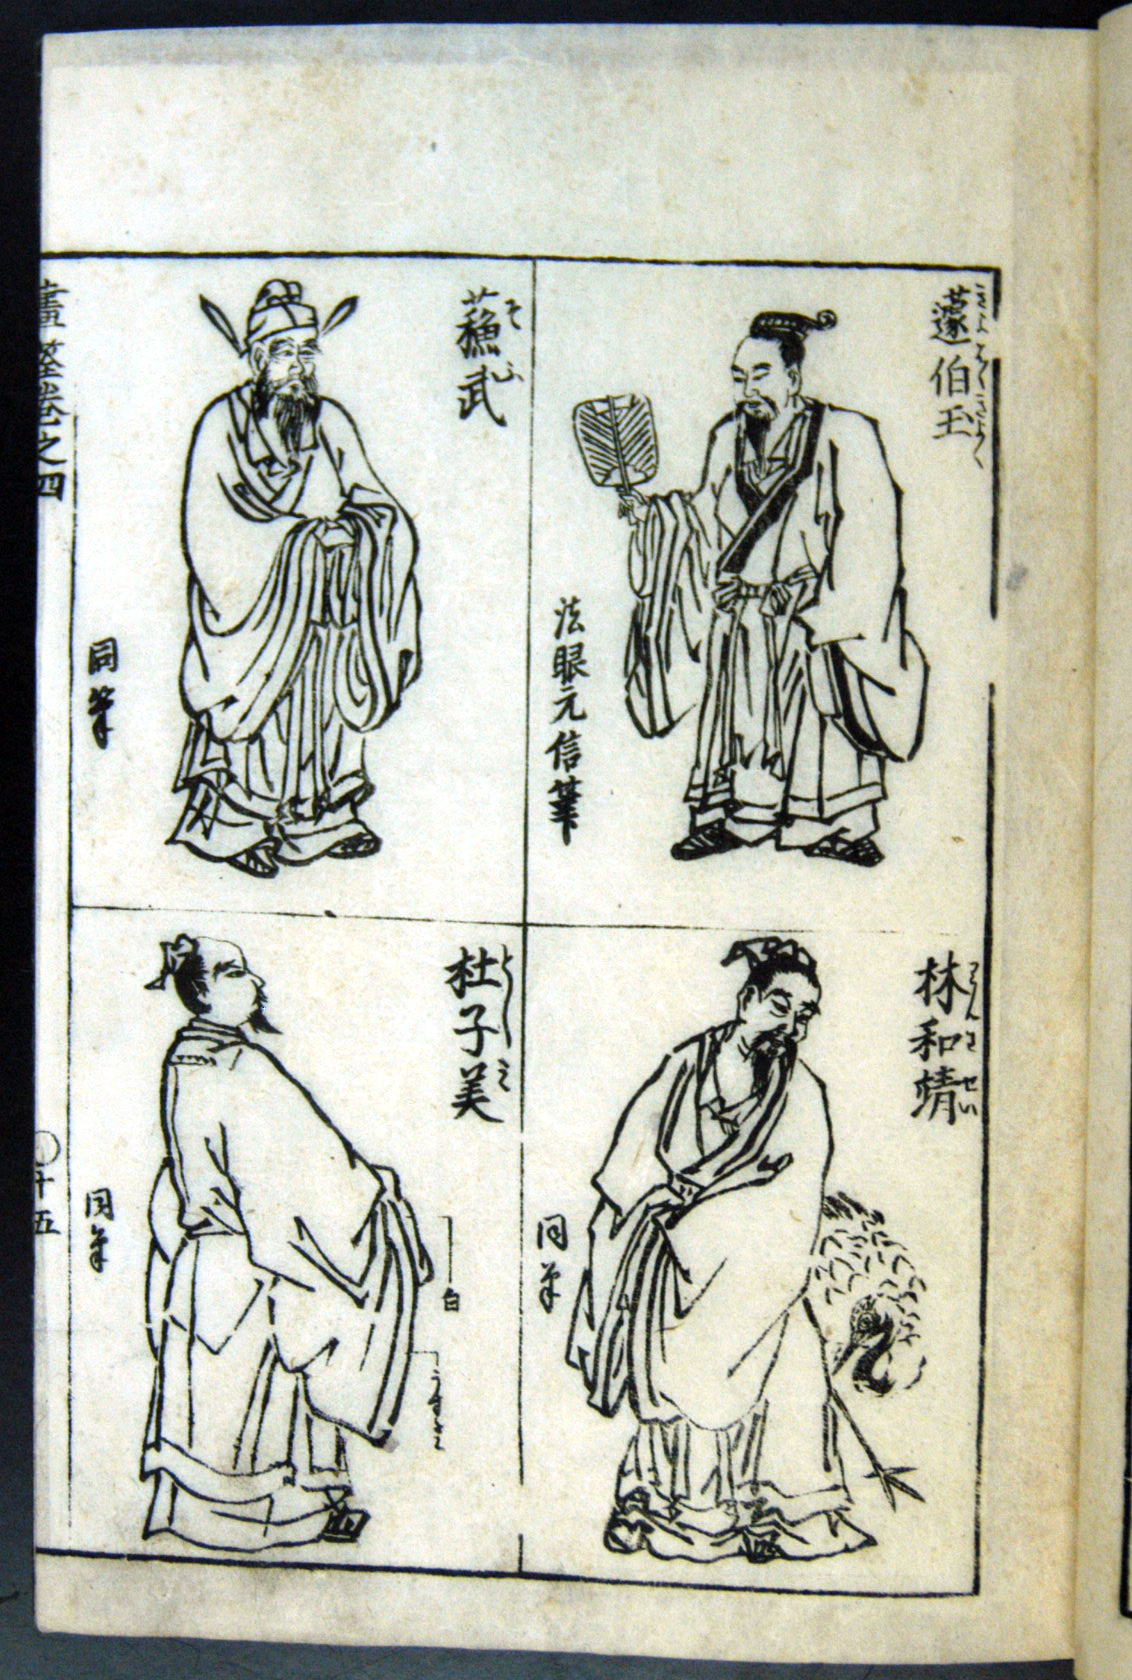 蘧伯玉
きよはくぎよく
法眼元信筆
蘓武
そふ
同筆
林和靖
りんわせい
同筆
杜子美
としみ
白
うすずみ
同筆
畫筌卷之四
十五